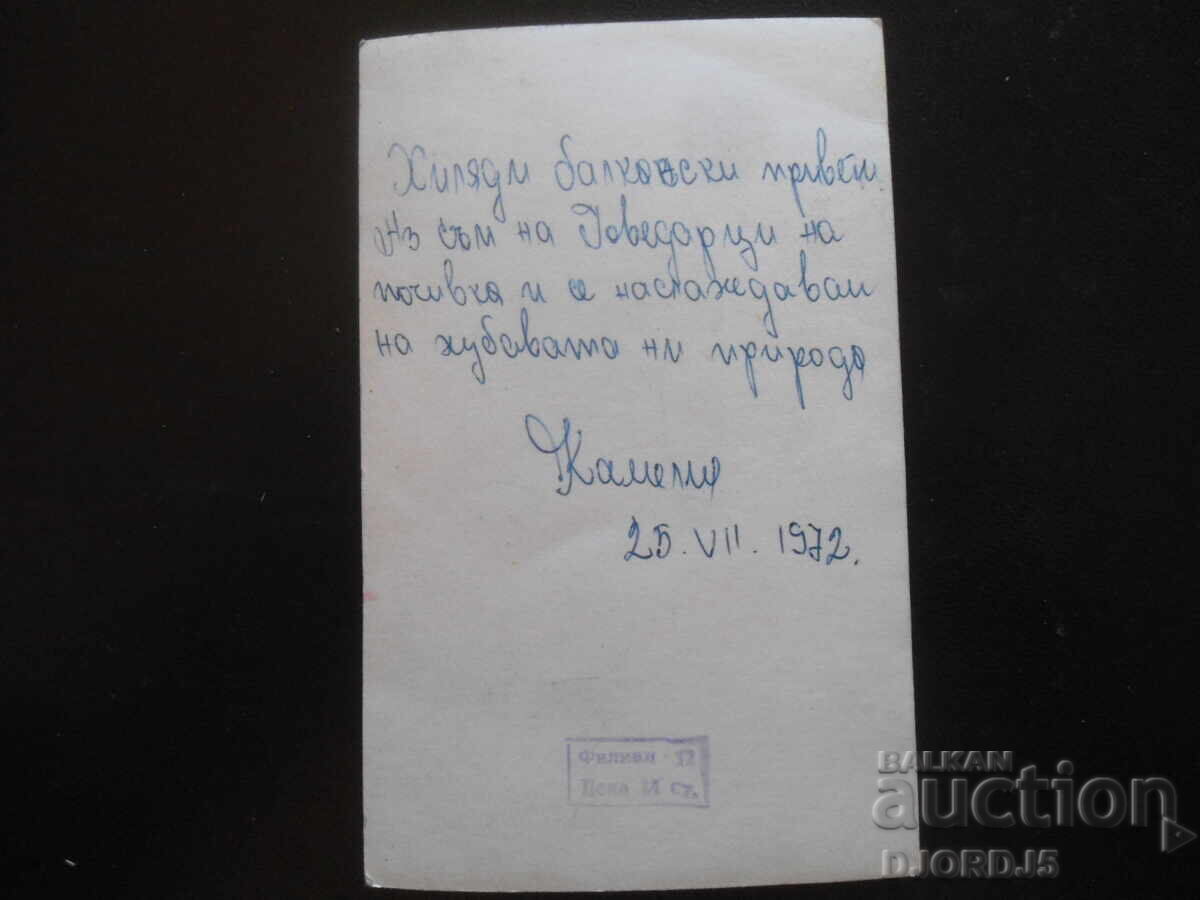 Хиляди балконски привети.
Аз съм на Говедарци на
почивка и се наслаждавам
на хубавата ни природа
25. VII. 1972.
Филиал 32
Цена ст.
BALKAN
auction
DJORDJ5